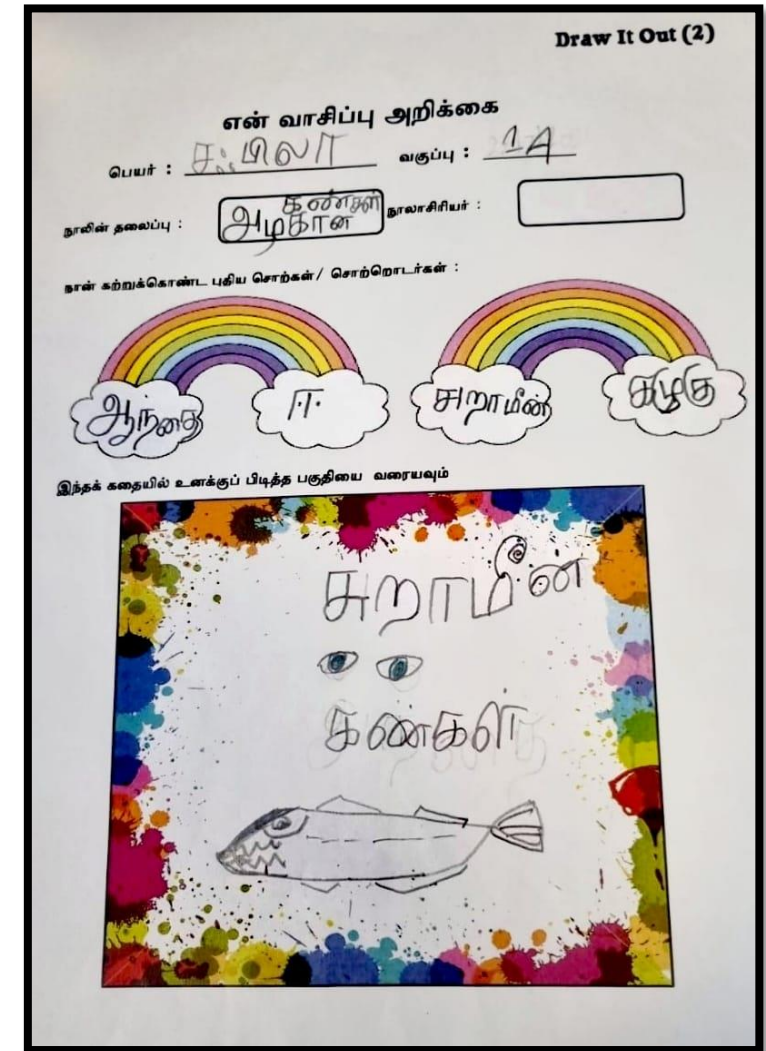 Draw It Out (2)
என் வாசிப்பு அறிக்கை
பெயர் : சஃபிலா வகுப்பு : 1A
நூலின் தலைப்பு : அழகான கண்கள் நூலாசிரியர் :
நான் கற்றுக்கொண்ட புதிய சொற்கள்/ சொற்றொடர்கள் :
ஆந்தை ஈ சுறாமீன் கழுகு
இந்தக் கதையில் உனக்குப் பிடித்த பகுதியை வரையவும்
சுறாமீன்
கண்கள்